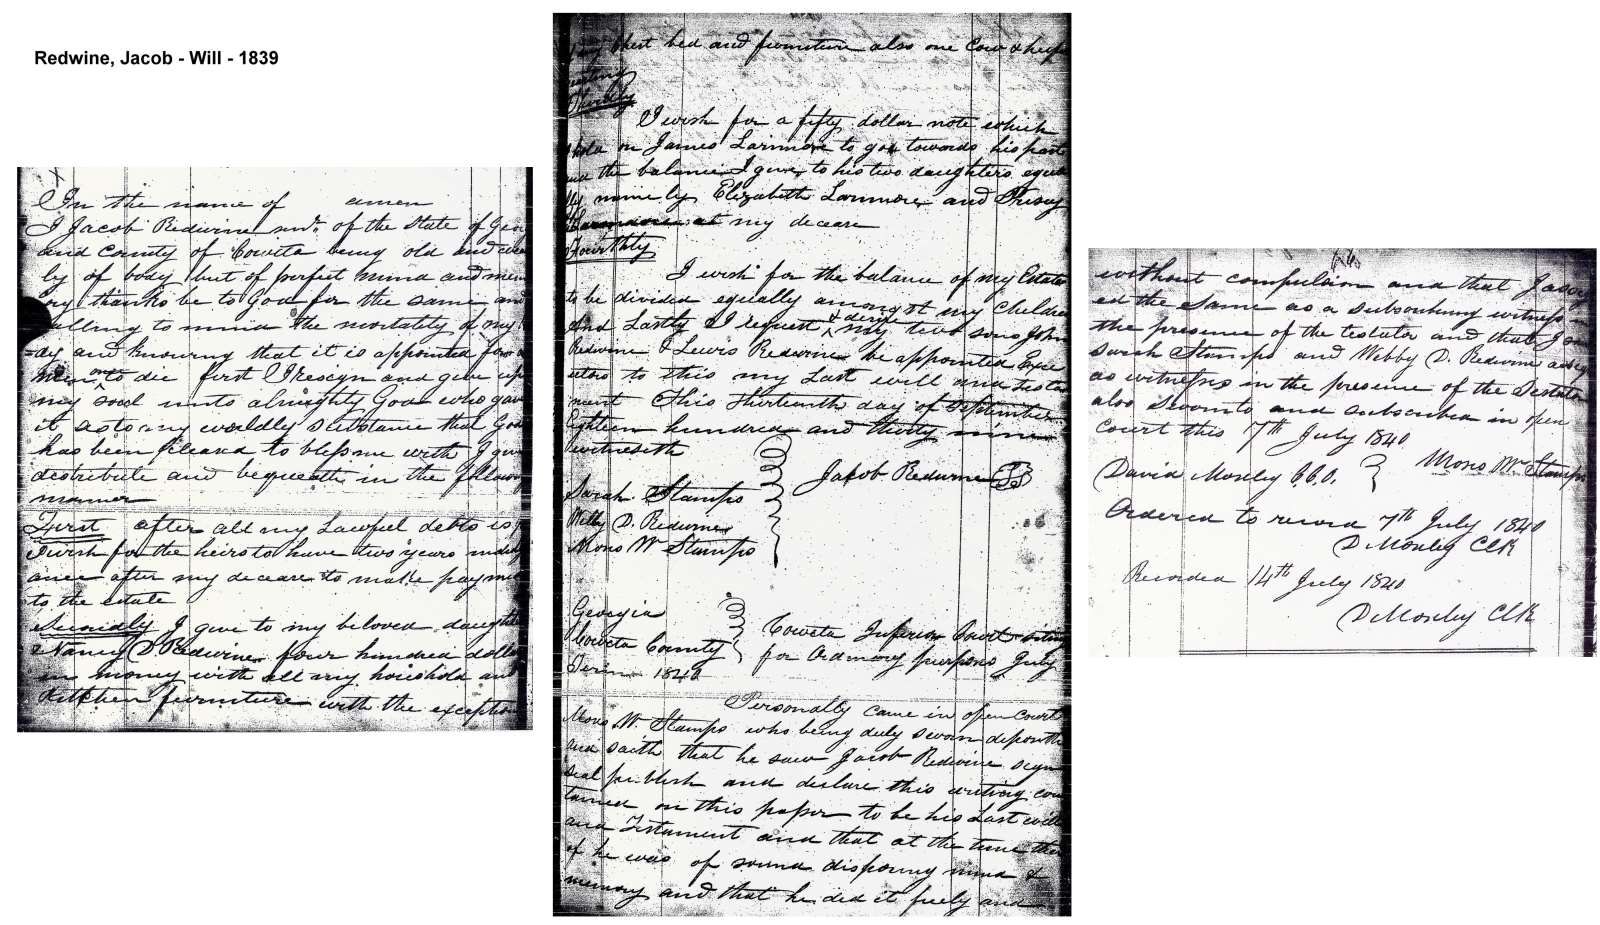 Redwine, Jacob - Will - 1839
In the name of amen
I Jacob Redwine senr. of the State of Geor
and County of Coweta being old and
ly of body but of perfect mind and mem
ory thanks be to God for the same and
alling to mind the mortality of my
dy and knowing that it is appointed for
men once to die first I resign and give up
my soul unto almighty God who gave
it as to my worldly substance that God
has been pleased to bless me with I give
destribute and bequeath in the following
manner
First after all my Lawful debts is
I wish for the heirs to have two years indulg
ance after my decease to make payment
to the estate
Secondly I give to my beloved daughter
Nancy D. Redwine four hundred dollars
in money with all my household and
Kitchen furniture with the exception
best bed and furniture also one Cow & heifer
Thirdly
I wish for a fifty dollar note which
I hold on James Larimore to go towards his part
and the balance I give to his two daughters equal
ly name by Elizabeth Larimore and
Larimore at my decease
Fourthly
I wish for the balance of my Estate
to be divided equally amongst my Children
And Lastly I request & desire my two sons John
Redwine & Lewis Redwine be appointed Exec
utors to this my Last will and Testa
ment This thirteenth day of September
Eighteen hundred and thirty nine
witnesseth
Jacob Redwine
Sarah Stamps
D. Redwine
Moses W Stamps
Georgia
Coweta County
Coweta Inferior Court siting
for Ordinary purposes July
Term 1840
Personally came in open court
Moses W. Stamps who being duly sworn deposeth
and saith that he saw Jacob Redwine sign
seal publish and declare this writing con
tained on this paper to be his Last will
and Testament and that at the time there
of he was of sound disposing mind &
memory and that he did it freely and
without compulsion and that
ed the same as a subscribing witness in
the presence of the testator and that
Sarah Stamps and D. Redwine
as witness in the presence of the Testator
also Sworn to and subscribed in open
court this 7th July 1840
Moses W Stamps
David Moseley
Ordered to record 7th July 1840
D Moseley Clk
Recorded 14th July 1840
D Moseley Clk